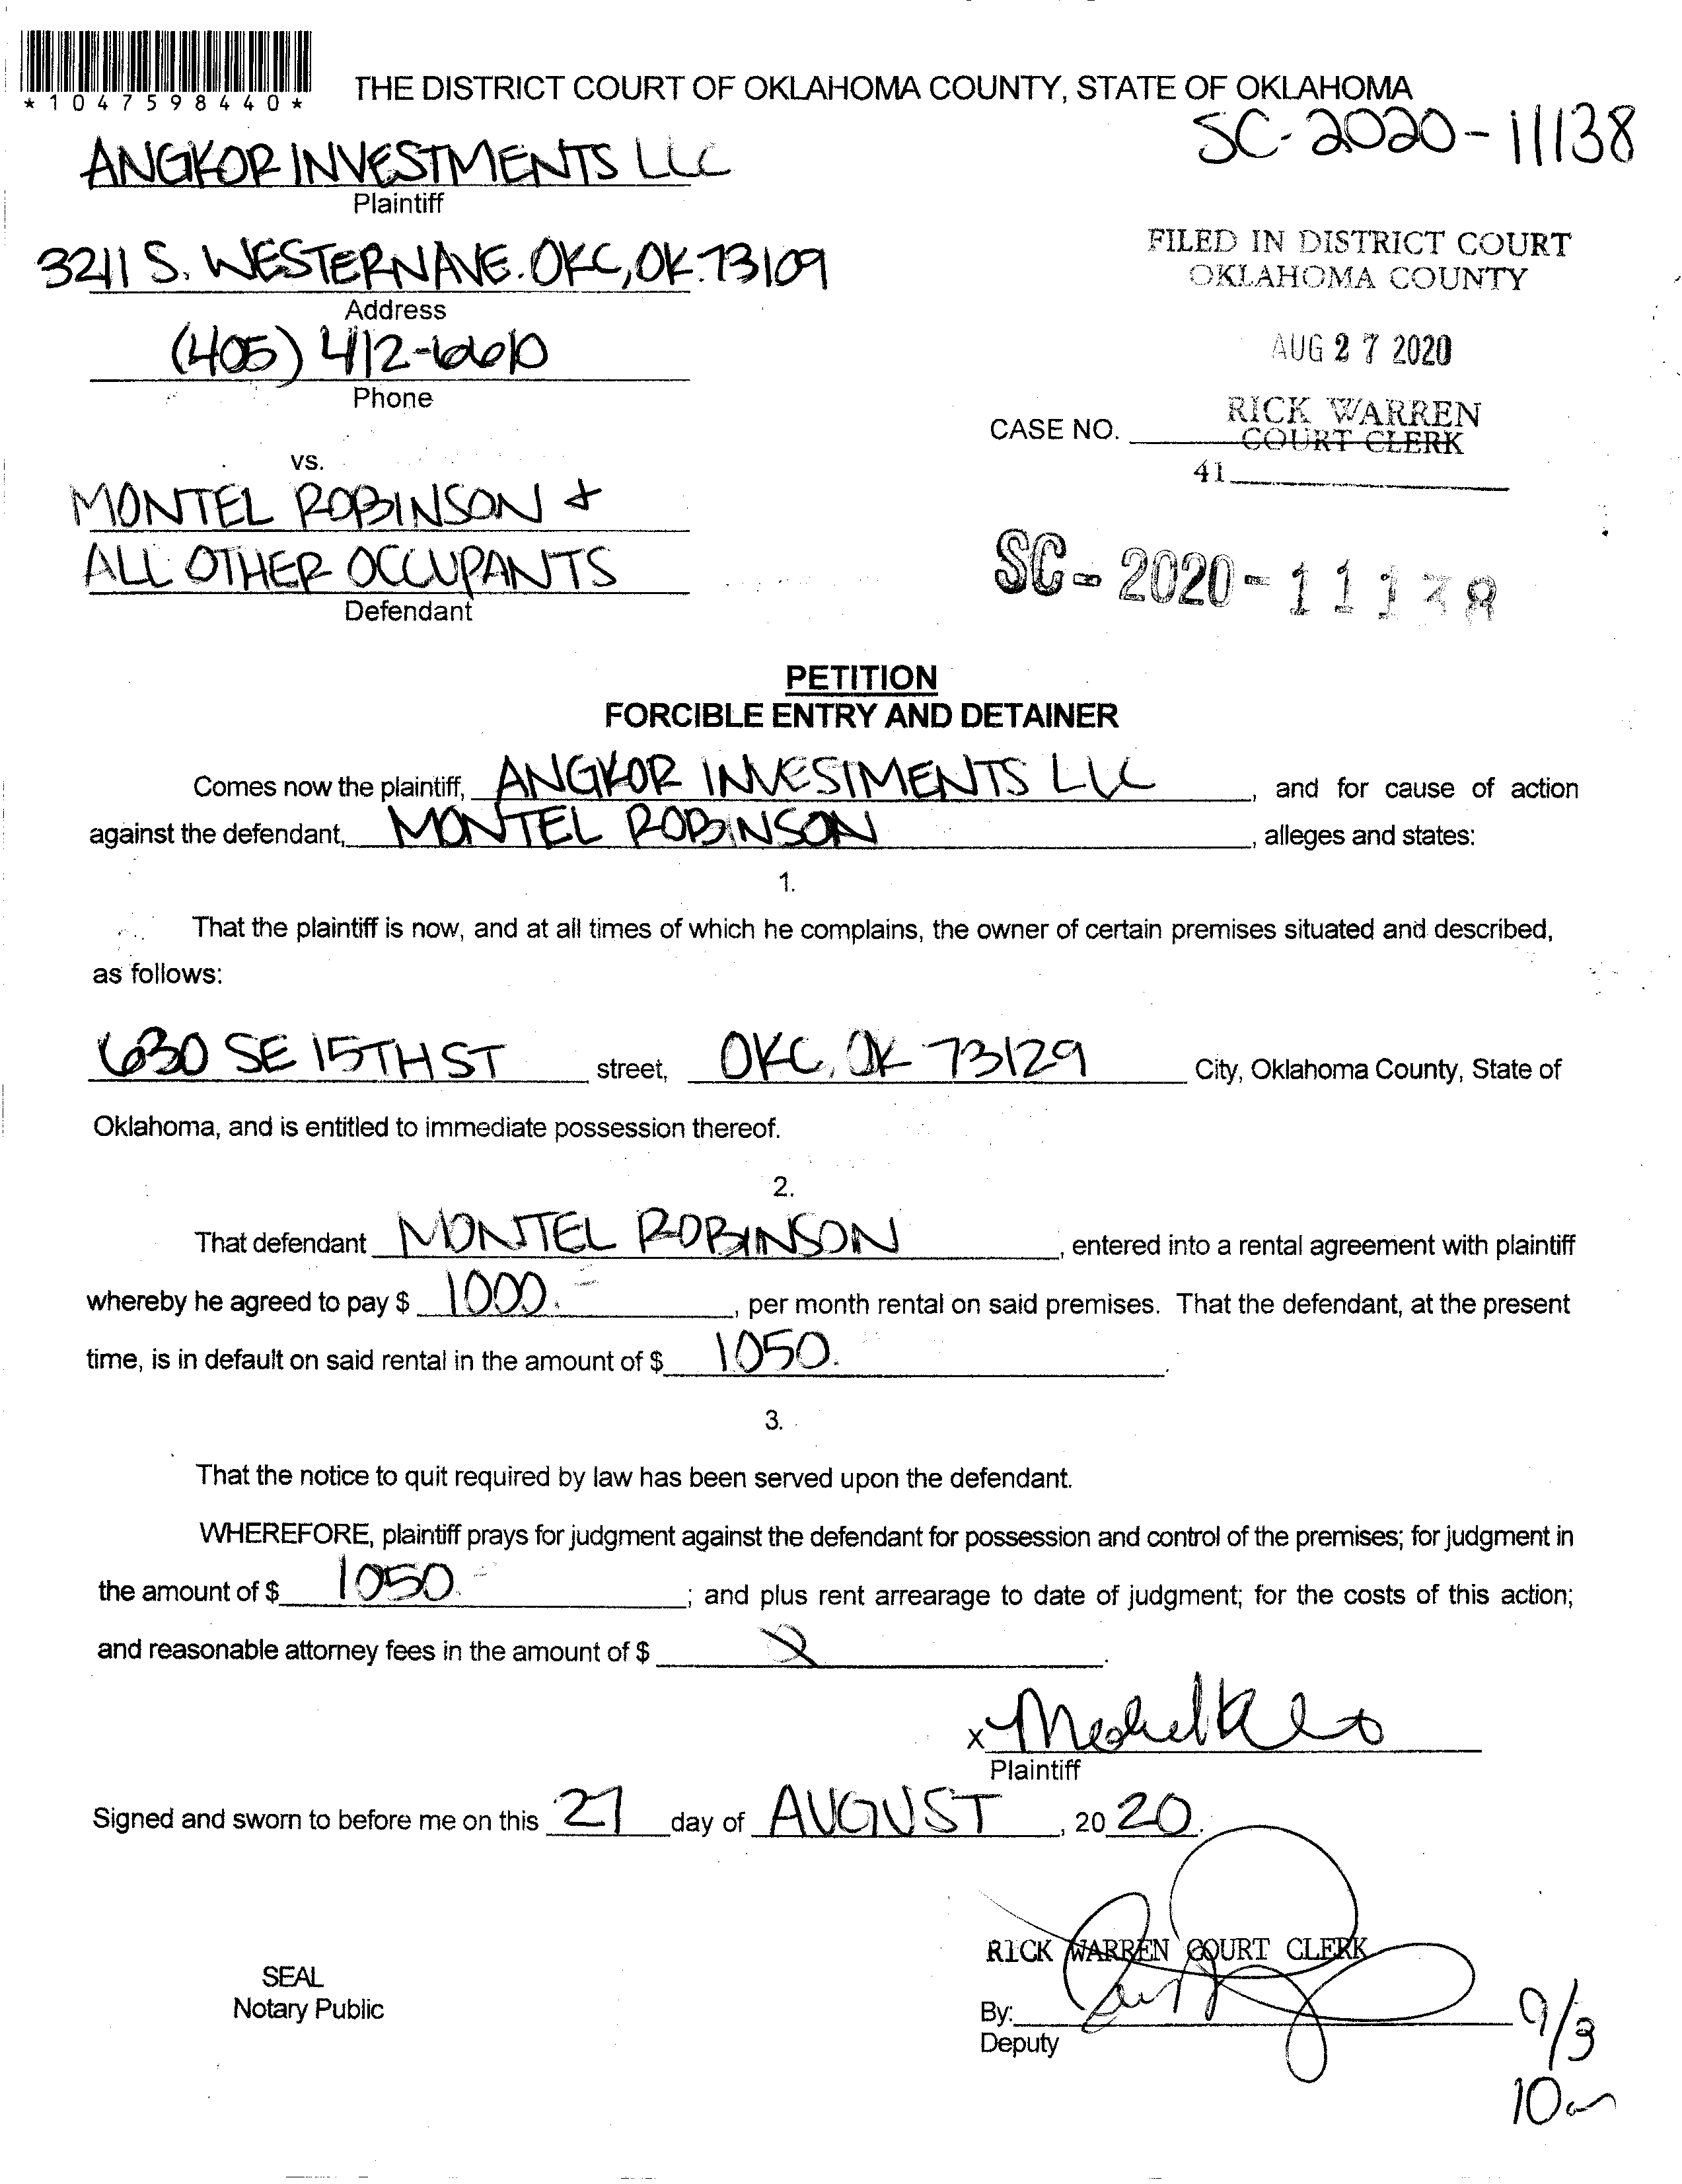 *1047598440*
THE DISTRICT COURT OF OKLAHOMA COUNTY, STATE OF OKLAHOMA
SC-2020-11138
ANGKOR INVESTMENTS LLC
Plaintiff
3211 S. WESTERN AVE. OKC, OK. 73109
Address
(405) 412-6610
Phone
FILED IN DISTRICT COURT
OKLAHOMA COUNTY
AUG 27 2020
RICK WARREN
COURT CLERK
CASE NO.
41
vs.
MONTEL ROBINSON &
ALL OTHER OCCUPANTS
Defendant
SC-2020-11138
PETITION
FORCIBLE ENTRY AND DETAINER
Comes now the plaintiff, ANGKOR INVESTMENTS LLC, and for cause of action
against the defendant, MONTEL ROBINSON, alleges and states:
1.
That the plaintiff is now, and at all times of which he complains, the owner of certain premises situated and described,
as follows:
630 SE 15TH ST street, OKC, OK 73129 City, Oklahoma County, State of
Oklahoma, and is entitled to immediate possession thereof.
2.
That defendant MONTEL ROBINSON, entered into a rental agreement with plaintiff
whereby he agreed to pay $ 1000.-, per month rental on said premises. That the defendant, at the present
time, is in default on said rental in the amount of $ 1050.
3.
That the notice to quit required by law has been served upon the defendant.
WHEREFORE, plaintiff prays for judgment against the defendant for possession and control of the premises; for judgment in
the amount of $ 1050.-; and plus rent arrearage to date of judgment; for the costs of this action;
and reasonable attorney fees in the amount of $
X
Plaintiff
Signed and sworn to before me on this 27 day of AUGUST, 2020.
RICK WARREN COURT CLERK
SEAL
Notary Public
By:
Deputy
9/3
10am